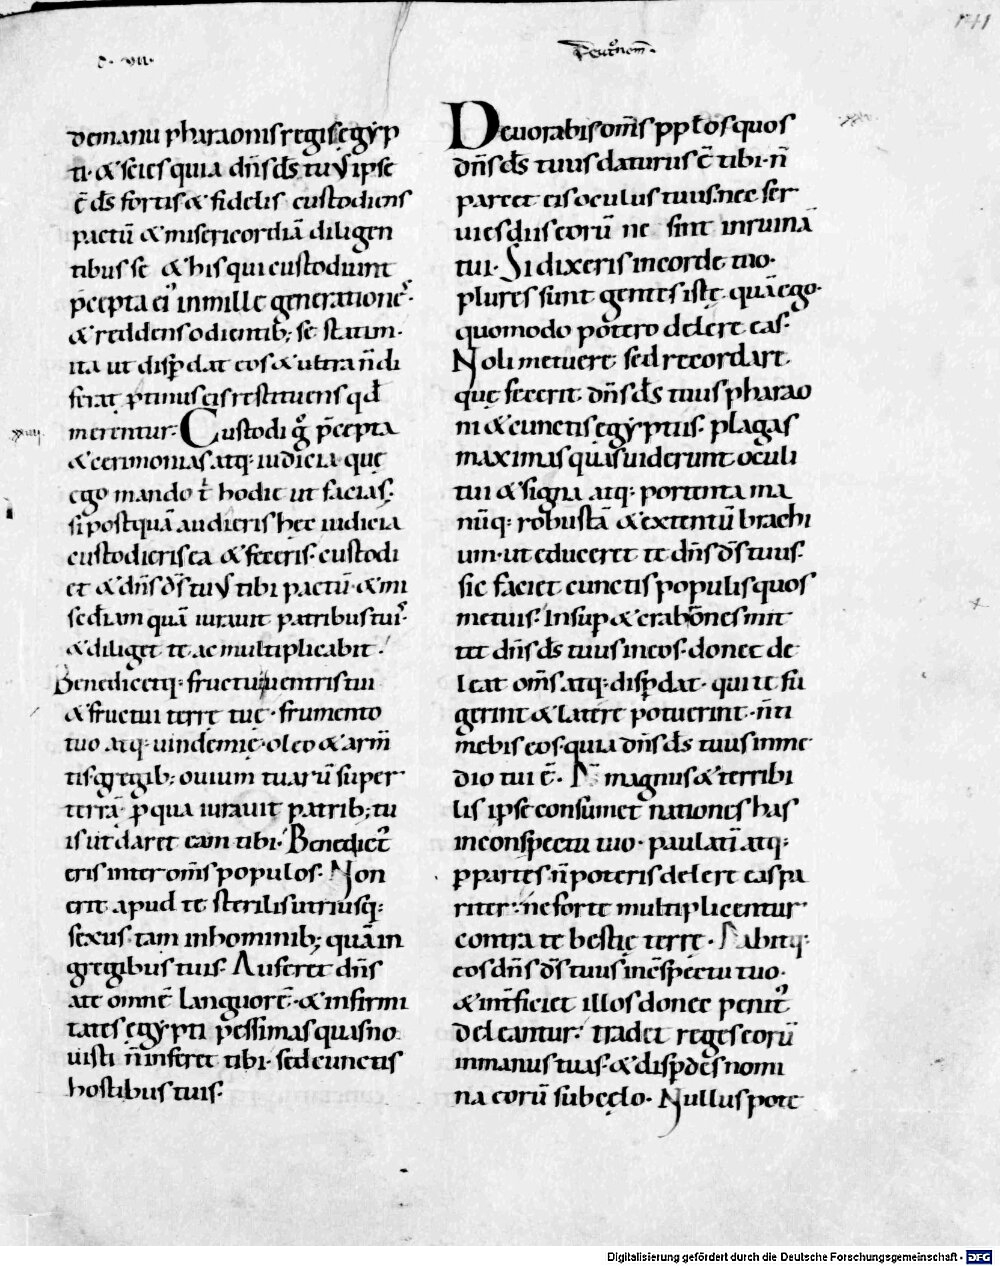 141
C. VII.
Deutnom̄.
demanu pharaonis regis egyp
ti· & scies quia dn̄s ds̄ tuus ipse
ē ds̄ fortis & fidelis custodiens
pactū & misericordiā diligen
tibus se & his qui custodiunt
p̄cepta ei' in mille generationes·
& reddens odientib; se statim·
ita ut disp̱dat eos & ultra n̄ di
ferat p̱tinus eis restituens qd̄
merentur· Custodi g̊ p̄cepta
xxiiii.
& cerimonias atq: iudicia quę
ego mando t̄ hodie ut facias·
si postquā audieris hec iudicia
custodieris ea & feceris· custodi
et & dn̄s ds̄ tuus tibi pactū· & mi
sedīam quā iurauit patribus tuis·
& diliget te ac multiplicabit·
Benedicetq: fructui uentris tui
& fructui terre tuę· frumento
tuo atq: uindemię· oleo & arm̄
tis· gregib; ouium tuarū super
terrā p̱ qua iurauit patrib; tu
is ut daret eam tibi· Benedict'
eris inter om̄s populos· Non
erit apud te sterilis utriusq:
sexus· tam in hominib; quā in
gregibus tuis· Auferet dn̄s
a te omnē languorē· & infirmi
tates egypti pessimas quas no
uisti n̄ inferet tibi· sed cunctis
hostibus tuis·
Deuorabis om̄s pp̄tos quos
dn̄s ds̄ tuus daturus ē tibi· n̄
parcet eis oculus tuus· nec ser
uies diis eorū ne sint in ruinā
tui· Si dixeris in corde tuo·
plures sunt gentes istę quā ego·
quomodo potero delere eas·
Noli metuere sed recordare
quę fecerit dn̄s ds̄ tuus pharao
ni & cunctis egyptiis· plagas
maximas quas uiderunt oculi
tui & signa atq: portenta ma
nūq: robustā & extentū brachi
um· ut educeret te dn̄s ds̄ tuus·
sic faciet cunctis populis quos
metuis· Insup̱ & crabrones mit
tet dn̄s ds̄ tuus in eos· donec de
leat om̄s atq: disp̱dat· qui te fu
gerint & latere potuerint· n̄ ti
mebis eos· quia dn̄s ds̄ tuus in me
dio tui ē· Ds̄ magnus & terribi
lis ipse consumet nationes has
in conspectu tuo· paulatī atq:
p̱ partes· n̄ poteris delere eas pa
riter· ne forte multiplicentur
contra te bestię terrę· Dabitq:
eos dn̄s ds̄ tuus in ɔspectu tuo·
& int̄ficiet illos donec penit'
deleantur· tradet reges eorū
in manus tuas· & disp̱des nomi
na eorū sub cęlo· Nullus pote
Digitalisierung gefördert durch die Deutsche Forschungsgemeinschaft - DFG